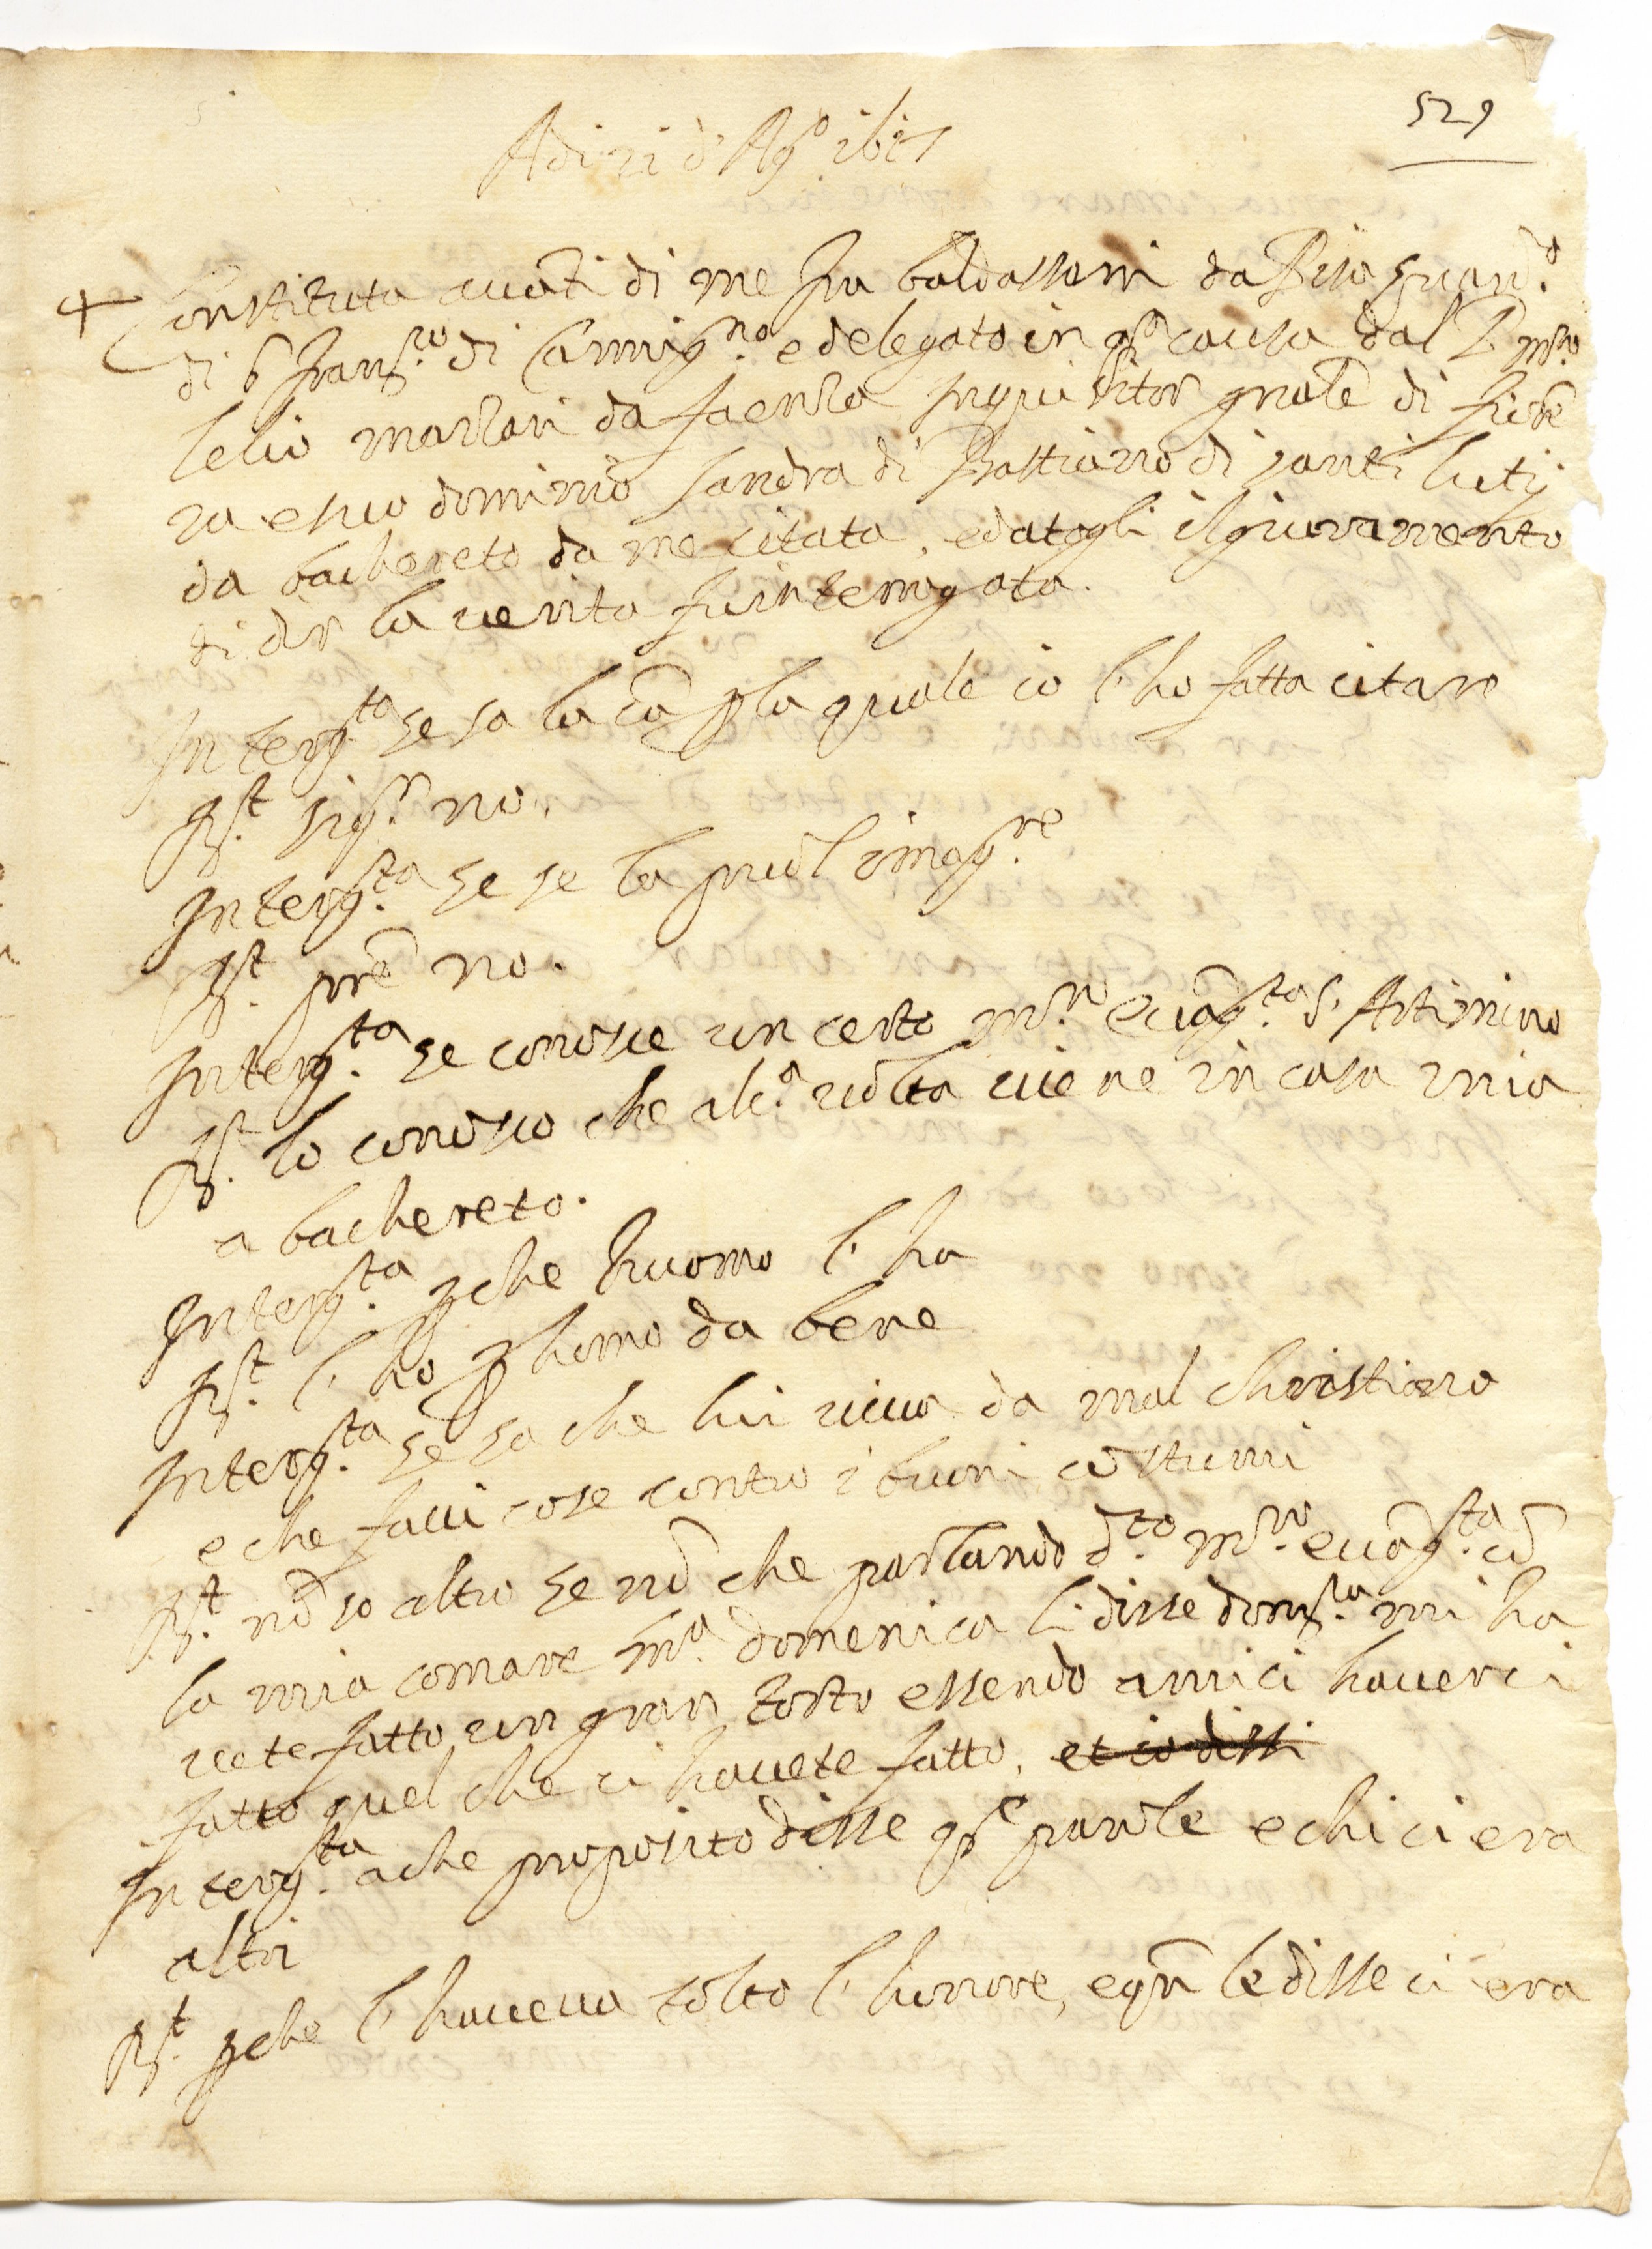 529
Adi 21 d' Ag.o 1617
Constituta auāti di me fra baldassarri da Pisa guard.o
di S. Franc.co di Carmig.no e delegato in q.a causa dal P. M.ro
lelio marzari da faenza Inquisitor gn̄ale di fiorē
za e suo dominio sandra di Bastiano di santi luti
da bachereto da me citata, e datogli il giuramento
di dir la uerita fu interrogata.
Interog.ta se sa la cā p la quale io l'ho fatta citare
R.t sig.r no.
Interog.ta se se la puol imag.re
R.t prē no.
Interog.ta se conosce un certo m.ro euāg.ta s. Artimino
R.t lo conosco che alc.a uolta uiene in casa mia
a bachereto.
Interog.ta p che huomo l' ha
R.t l' ho p homo da bene
Interog.ta se sa che lui uiua da mal christiano
e che facci cose contro i buoni costumi
R.t nō so altro se nō che parlando d.to m.ro euāg.ta cō
la mia comare m.a domenica li disse dom.ca mi ha
uete fatto un gran torto essendo amici hauerci
fatto quel che ci hauete fatto, et io dissi
Interog.ta a che proposito disse q.e parole e chi ci era
altri
R.t p che l' haueua tolto l' honore, e qn̄ le disse ci era